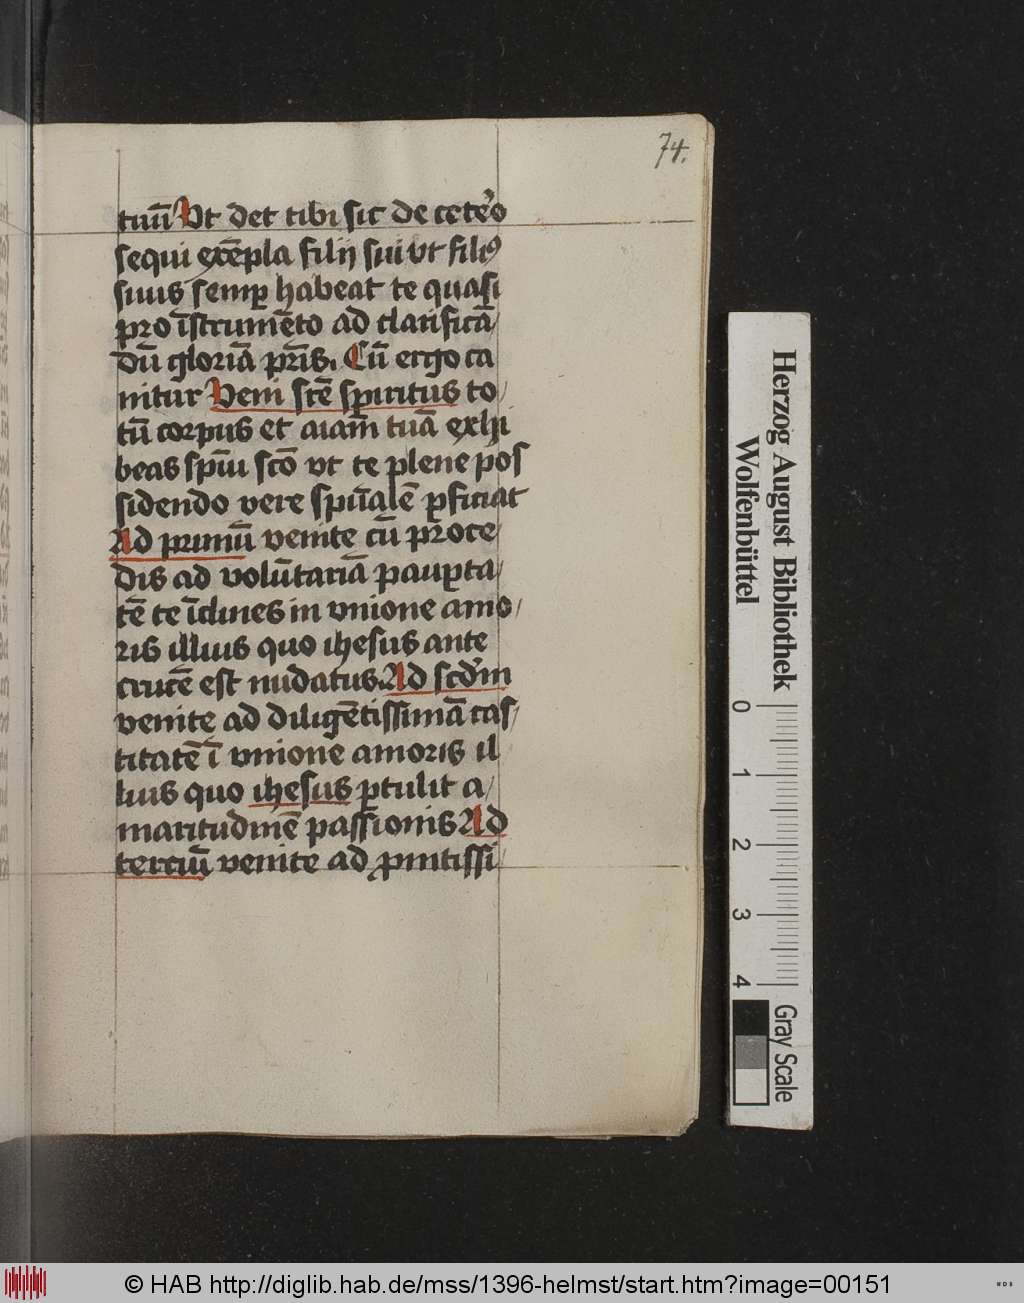 74.
tuū Vt det tibi sic de ceteo
sequi exēpla filij sui vt filiꝰ
suus semꝑ habeat te quasi
pro īstrumēto ad clarificā/
dū gloriā pr̄is. Cū ergo ca
nitur Veni sc̄e spiritus to/
tū corpus et aīam tuā exhi
beas spm̄ sc̄o vt te plene pos
sidendo vere spūalē ꝑficiat
Ad primū venite cū proce/
dis ad volūtariā pauꝑta/
tē te īclines in vnione amo/
ris illius quo ihesus ante
crucē est nudatus. Ad scd̄m
venite ad diligētissimā cas/
titatē ī vnione amoris il
lius quo ihesus ꝑtulit a/
maritudinē passionis Ad
terciū venite ad promtissi/
Herzog August Bibliothek
Wolfenbüttel
0
1
2
3
4
Gray Scale
© HAB http://diglib.hab.de/mss/1396-helmst/start.htm?image=00151
WDB